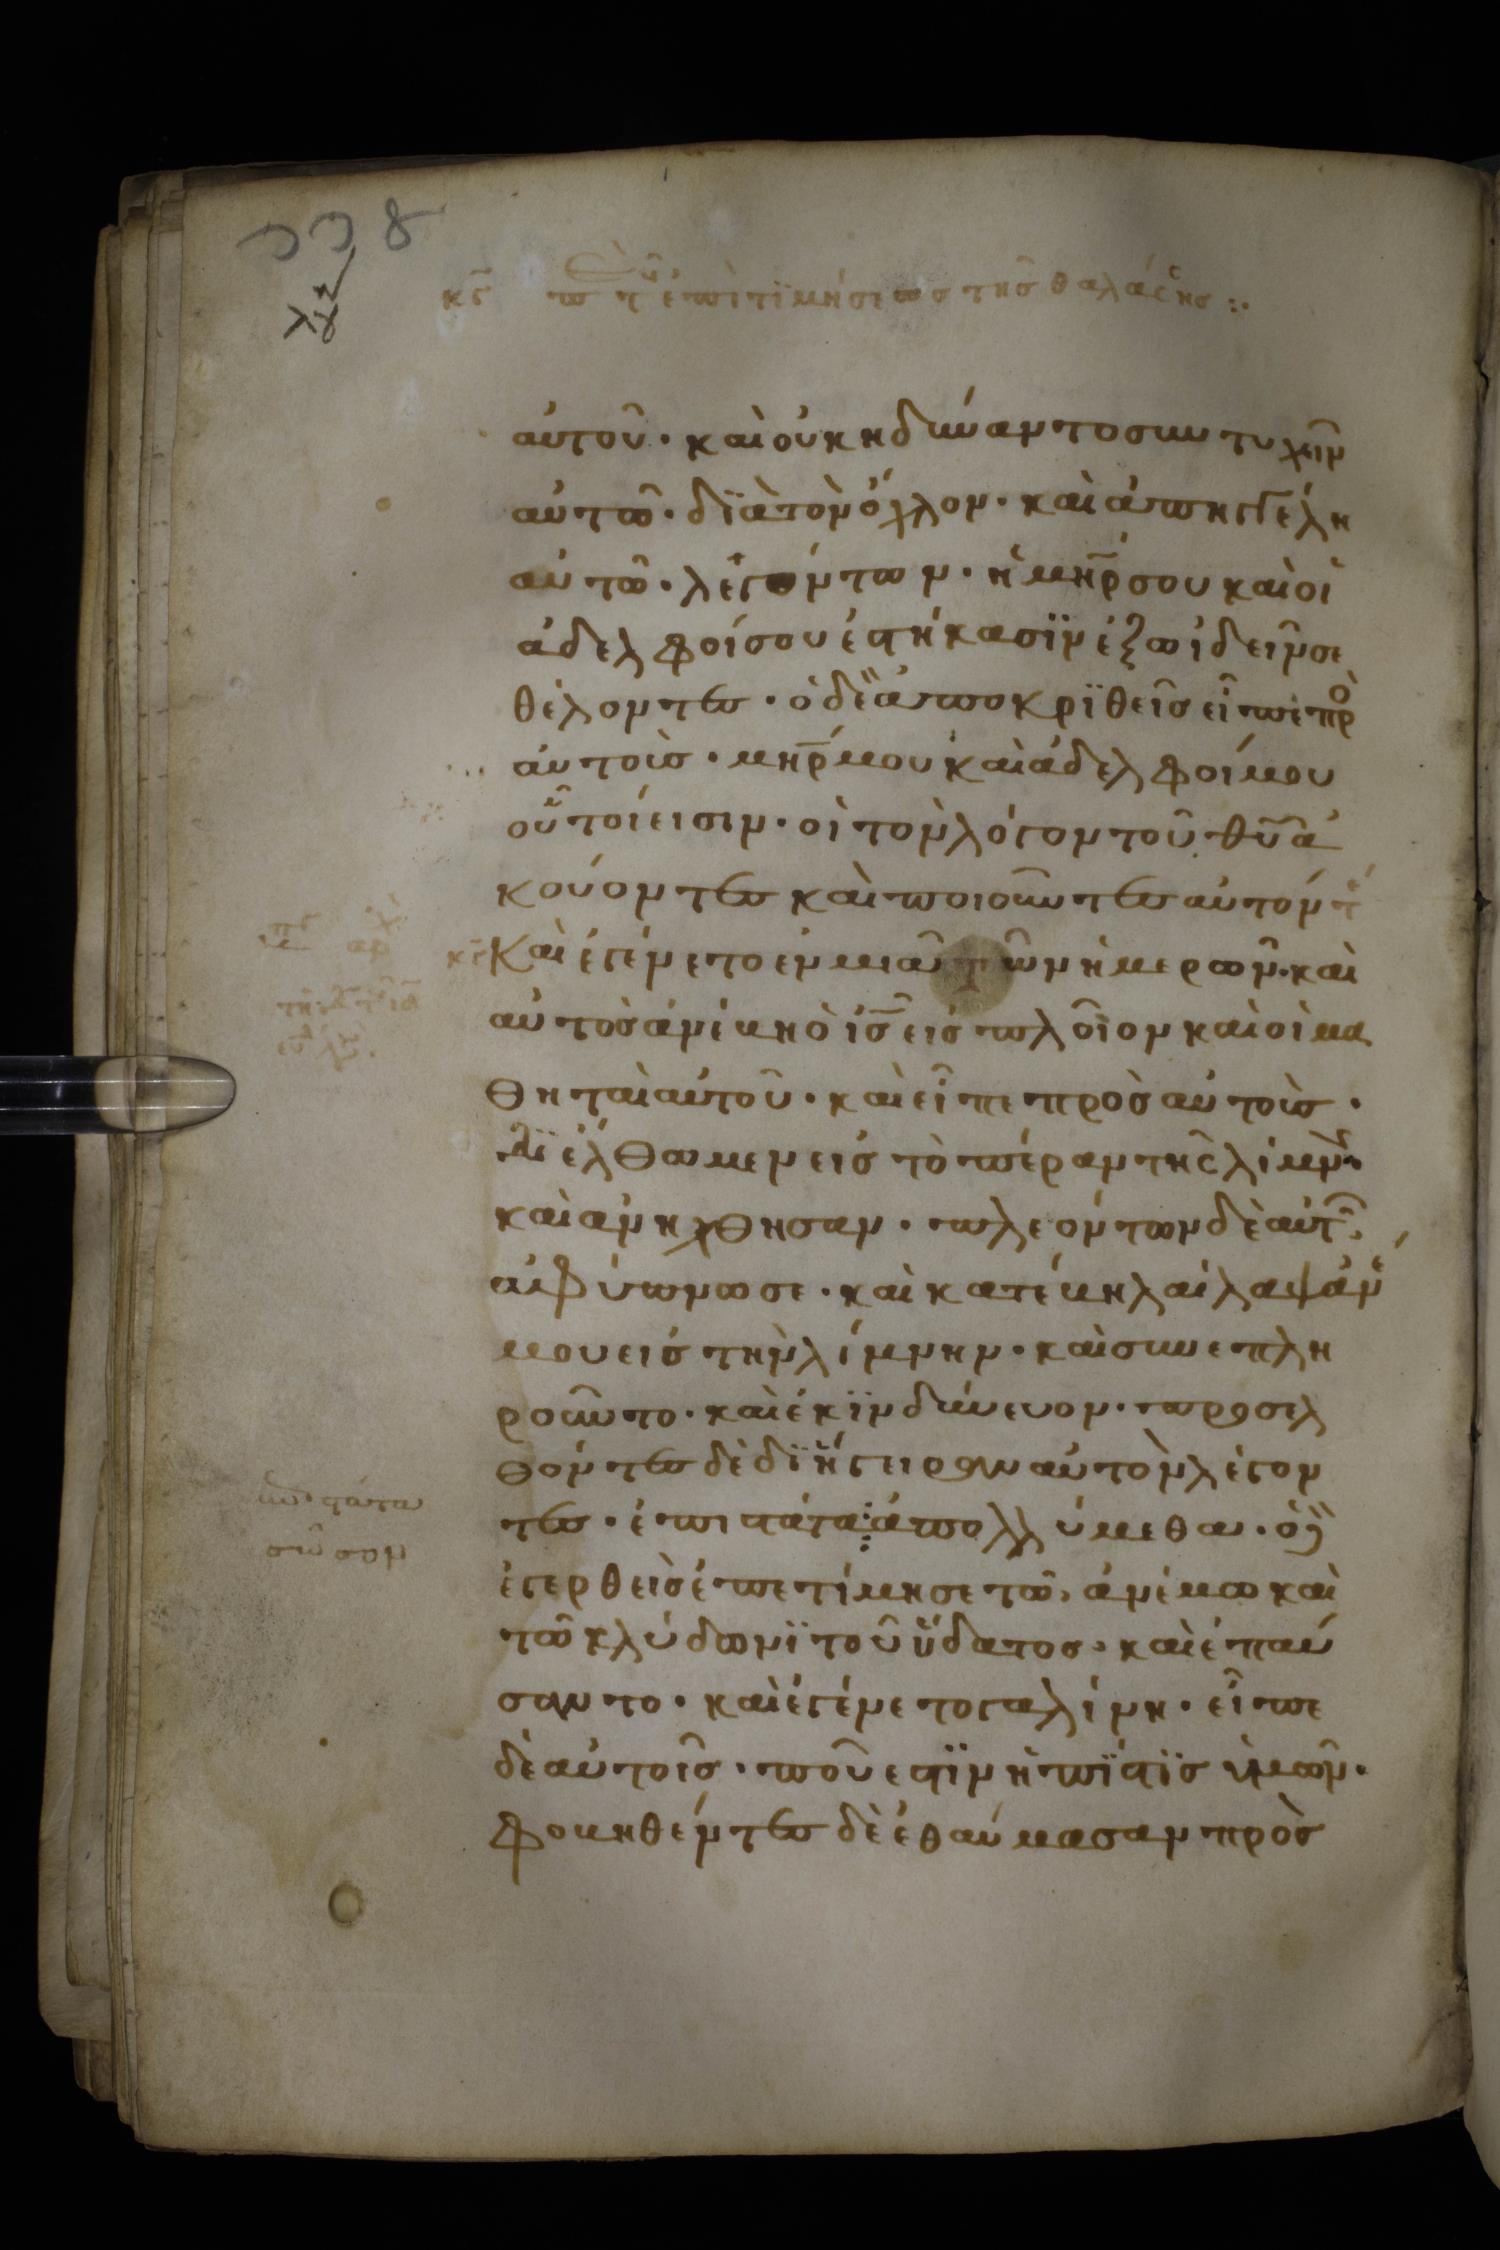 338
κϛ π τ ἐπιτϊμήσεως τῆς θαλάσσης :·
αὐτοῦ · καὶ οὐκ ηδύναντο συντυχεῖν
αὐτῶ · δϊὰ τὸν ὄχλον · καὶ ἀπηγγέλη
αὐτῶ · λεγόντων · ἡ μηρ σου καὶ οἱ
ἀδελφοί σου ἑστήκασϊν ἔξω ἰδεῖν σε
θέλοντες · ὁ δὲ ἀποκρϊθεὶς εἶπε πρὸ
αὐτοὺς · μηρ μου καὶ ἀδελφοί μου
οὗτοί εισιν · οἱ τὸν λόγον τοῦ θυ ἀ
κούοντες καὶ ποιοῦντες αὐτόν τέ
κϛ Καὶ ἐγένετο ἐν μιᾶ τῶν ἡμερῶν · καὶ
αὐτὸς ἀνέβη ὁ ις εἰς πλοῖον καὶ οἱ μα
θηταὶ αὐτοῦ · καὶ εἶπε πρὸς αὐτοὺς ·
Δϊέλθωμεν εἰς τὸ πέραν τῆς λίμν
καὶ ἀνήχθησαν · πλεόντων δὲ αὐτ
ἀφύπνωσε · καὶ κατέβη λαίλαψ ἀνέ
μου εἰς τὴν λίμνην · καὶ συνεπλη
ροῦντο · καὶ ἐκϊνδύνευον · προσελ
θόντες δὲ δϊήγειραν αὐτὸν λέγον
τες · ἐπιστάτα ἀπολλύμεθα · ὁ δὲ
ἐγερθεὶς ἐπετίμησε τῶ ἀνέμω καὶ
τῶ κλύδωνϊ τοῦ ὕδατος · καὶ ἐπαύ
σαντο · καὶ ἐγένετο γαλίνη · εἶπε
δὲ αὐτοῖς · ποῦ εστϊν ἡ πϊστϊς ὑμῶν ·
φοβηθέντες δὲ ἐθαύμασαν πρὸς
σῶσον